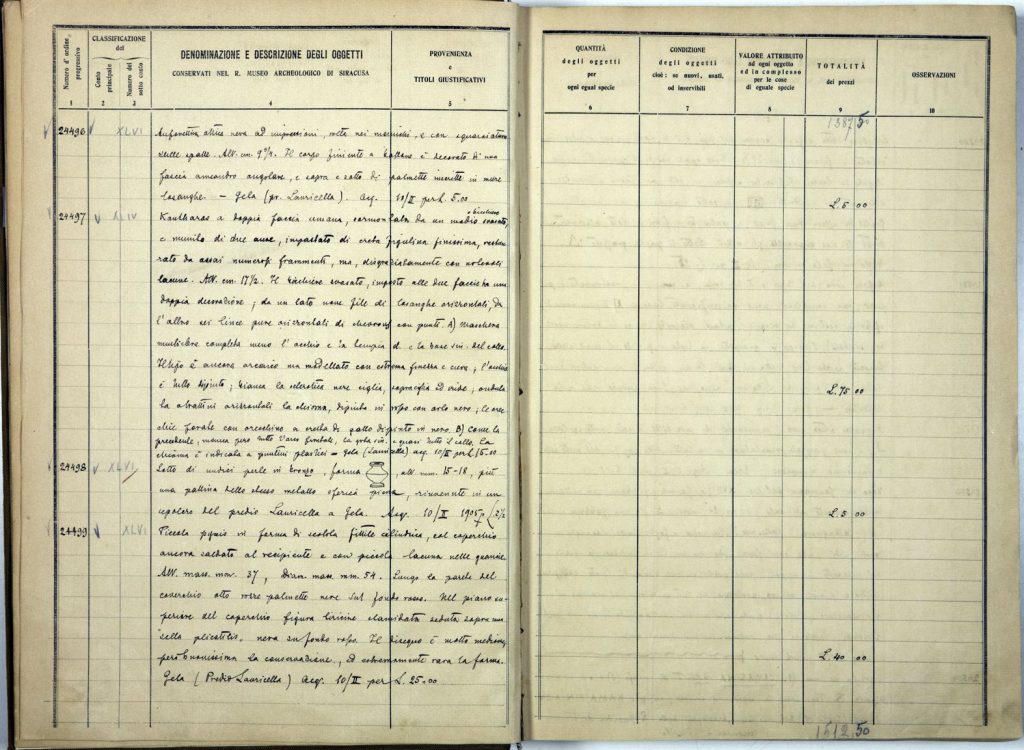 Numero d'ordine progressivo
CLASSIFICAZIONE
del
Conto principale
Numero del sotto conto
DENOMINAZIONE E DESCRIZIONE DEGLI OGGETTI
CONSERVATI NEL R. MUSEO ARCHEOLOGICO DI SIRACUSA
PROVENIENZA
e
TITOLI GIUSTIFICATIVI
1 2 3 4 5
24496 XLVI
nera ad impressioni, rotta nei manichi, e con
nelle spalle. Alt. cm. 9 3/4. Il corpo finiente a è decorato di una
fascia a meandro angolare, e sopra e sotto di palmette inscritte in mezze
losanghe. – Gela (pr. Lauricella). Acq. 10/II per L. 5.00
24497 XLIV
Kantharos a doppia faccia umana, sormontata da un bicchiere svasato,
e munito di due anse, impastato di creta figulina finissima, restau-
rato da assai numerosi frammenti, ma, disgraziatamente con notevoli
lacune. Alt. cm. 17 1/2. Il bicchiere svasato, imposto alle due faccie ha una
doppia decorazione; da un lato nove file di losanghe orizzontali, da
l'altro sei linee pure orizzontali di chevrons con punti. A) Maschera
muliebre completa meno l'occhio e la tempia d. e la base sin. del collo.
Il tipo è ancora arcaico ma modellato con estrema finezza e cura; l'occhio
è tutto dipinto; bianca la sclerotica nere ciglia, sopraciglia ed iride; ondulata
la orizzontali la chioma, dipinta in rosso con orlo nero; le orec-
chie forate con orecchino a cresta di gallo dipinto in nero. B) Come la
precedente, manca però tutto l'arco frontale, la gota sin. e quasi tutto il collo. La
chioma è indicata a puntini plastici – Gela (Lauricella) acq. 10/II per L. 75.00
24498 XLVI
Lotto di undici perle in bronzo, forma , alt. mm. 15-18, più
una pallina dello stesso metallo sferica piena, rinvenute in un
sepolcro del predio Lauricella a Gela. Acq. 10/II 1905
24499 XLVI
Piccola pyxis in forma di scatola fittile cilindrica, col coperchio
ancora saldato al recipiente e con piccola lacuna nelle
Alt. mass. mm. 37, Diam. mass. mm. 54. Lungo la parete del
coperchio otto palmette nere sul fondo rosso. Nel piano su-
periore del coperchio figura virile clamidata seduta sopra una
sella plicatilis, nera su fondo rosso. Il disegno è molto mediocre,
però buonissima la conservazione, ed estremamente rara la forma.
Gela (Predio Lauricella) Acq. 10/II per L. 25.00
QUANTITÀ
degli oggetti
per
ogni egual specie
CONDIZIONE
degli oggetti
cioè: se nuovi, usati,
od inservibili
VALORE ATTRIBUITO
ad ogni oggetto
ed in complesso
per le cose
di eguale specie
TOTALITÀ
dei prezzi
OSSERVAZIONI
6 7 8 9 10
1387,50
L. 5 00
L. 75 00
L. 5 00
L. 40 00
1512,50